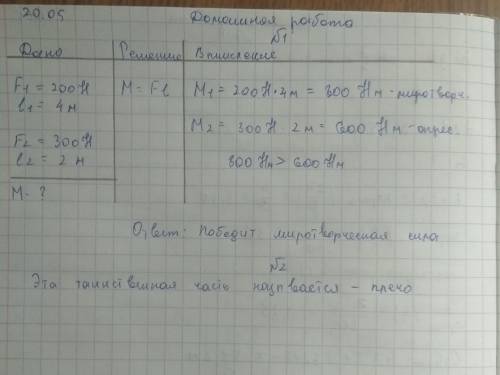 20.05 Домашняя работа
№1
Дано Решение Вычисление
F1 = 200 Н M = Fl M1 = 200 Н · 4 м = 800 Нм - миротворч.
l1 = 4 м
M2 = 300 Н · 2 м = 600 Нм - агрес.
F2 = 300 Н
l2 = 2 м 800 Нм > 600 Нм
M - ?
Ответ: Победит миротворческая сила
№2
Эта таинственная часть называется - плечо